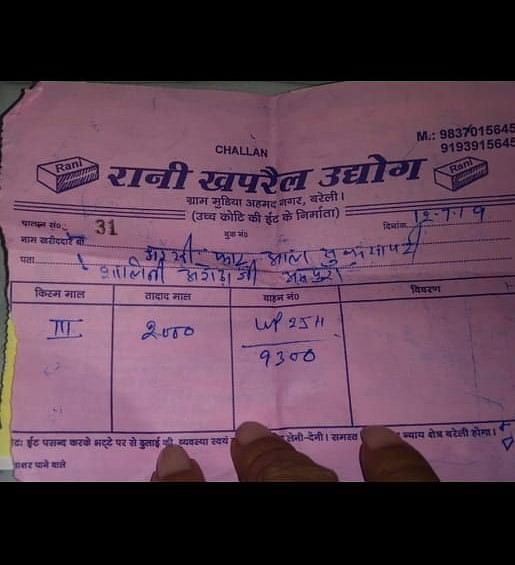 M.: 9837015645
9193915645
CHALLAN
Rani
रानी खपरैल उद्योग
Rani
ग्राम मुडिया अहमद नगर, बरेली।
(उच्च कोटि की ईंट के निर्माता)
चालान सं०: 31
बुक सं०
दिनांक 12-7-19
नाम खरीददार
पता
किस्म माल तादाद माल वाहन नं० विवरण
III 2000 UP 25H
9300
ईंट पसन्द करके भट्टे पर से ढुलाई की व्यवस्था स्वयं लेनी-देनी। समस्त न्याय क्षेत्र बरेली होगा।
पाने वाले